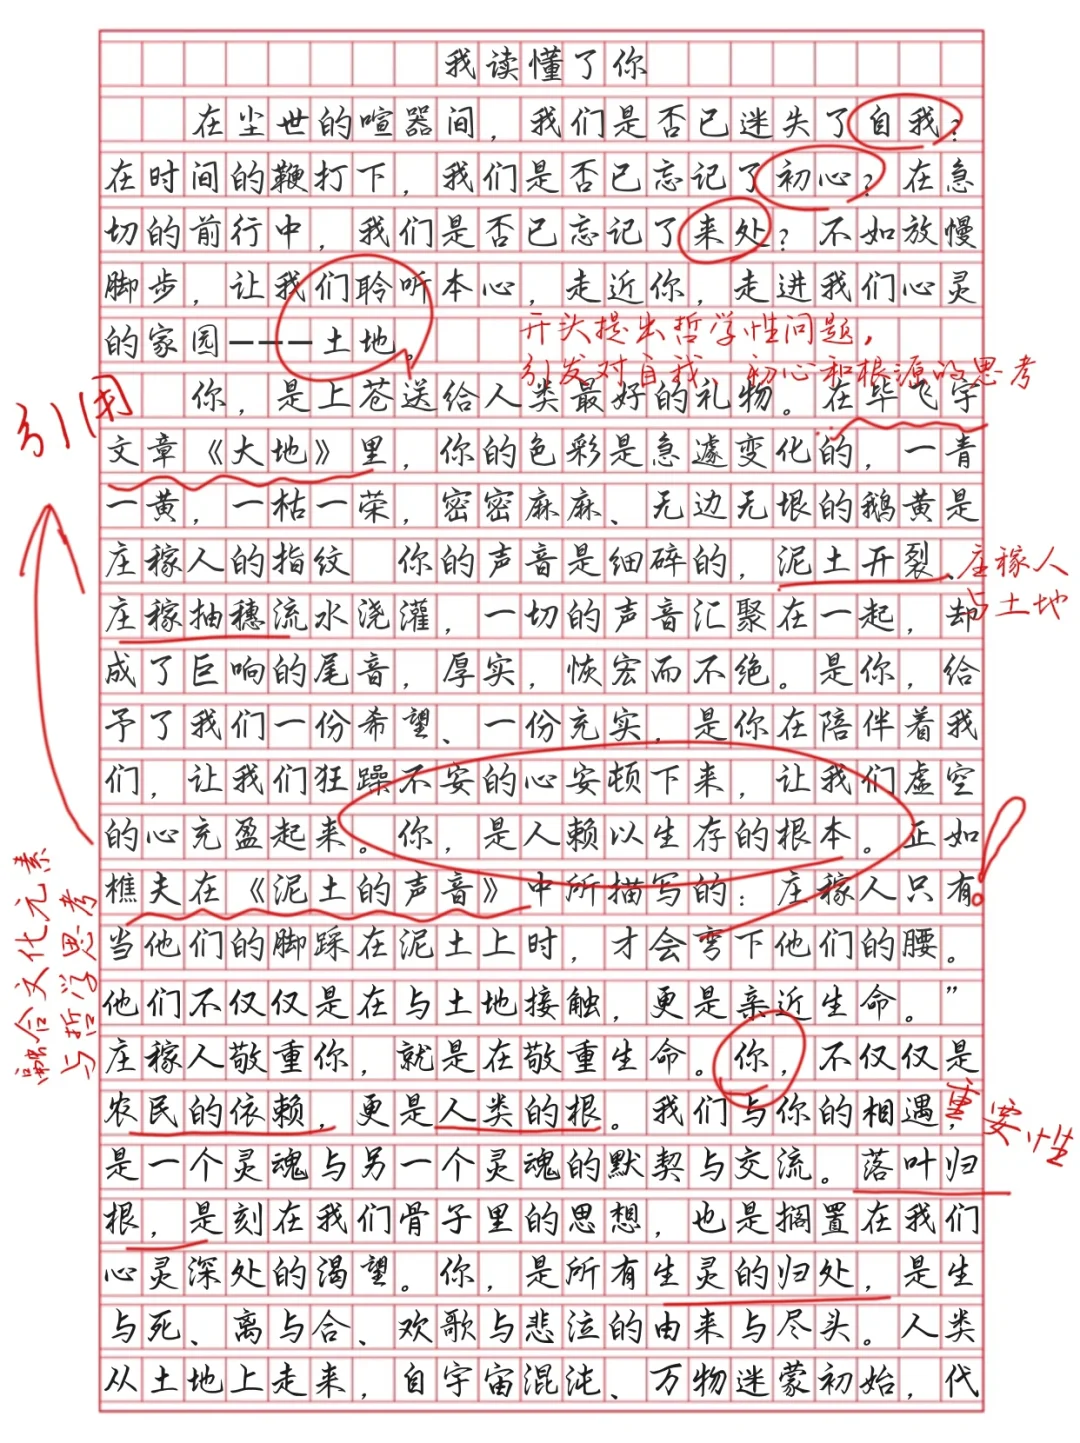 我读懂了你
在尘世的喧嚣间，我们是否已迷失了自我？
在时间的鞭打下，我们是否已忘记了初心？在急
切的前行中，我们是否已忘记了来处？不如放慢
脚步，让我们聆听本心，走近你，走进我们心灵
的家园———土地。
开头提出哲学性问题，
引发对自我、初心和根源的思考
引用
你，是上苍送给人类最好的礼物。在毕飞宇
文章《大地》里，你的色彩是急遽变化的，一青
一黄，一枯一荣，密密麻麻、无边无垠的鹅黄是
庄稼人的指纹 你的声音是细碎的，泥土开裂、
庄稼抽穗流水浇灌，一切的声音汇聚在一起，却
庄稼人
与土地
成了巨响的尾音，厚实，恢宏而不绝。是你，给
予了我们一份希望、一份充实，是你在陪伴着我
们，让我们狂躁不安的心安顿下来，让我们虚空
的心充盈起来。你，是人赖以生存的根本。正如
樵夫在《泥土的声音》中所描写的：庄稼人只有
当他们的脚踩在泥土上时，才会弯下他们的腰。
他们不仅仅是在与土地接触，更是亲近生命。”
融合文化元素
与哲学思考
庄稼人敬重你，就是在敬重生命。你，不仅仅是
农民的依赖，更是人类的根。我们与你的相遇，
重要性
是一个灵魂与另一个灵魂的默契与交流。落叶归
根，是刻在我们骨子里的思想，也是搁置在我们
心灵深处的渴望。你，是所有生灵的归处，是生
与死、离与合、欢歌与悲泣的由来与尽头。人类
从土地上走来，自宇宙混沌、万物迷蒙初始，代